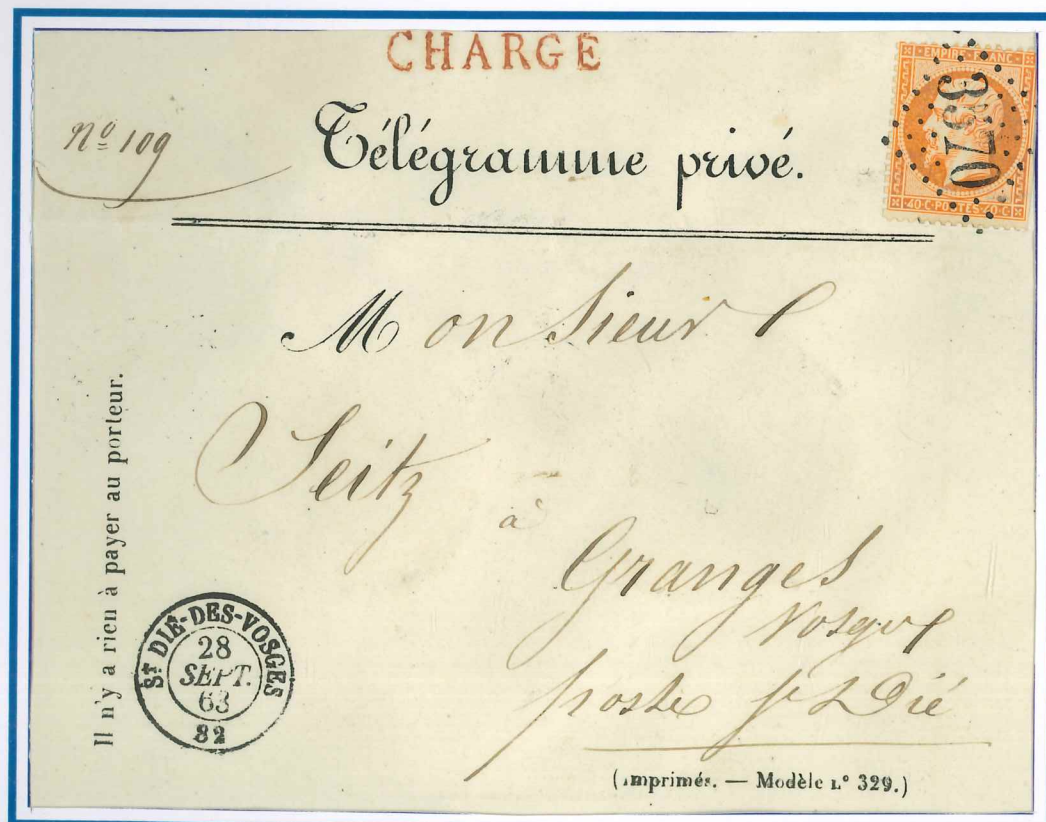 CHARGÉ
Nº 109
Télégramme privé.
EMPIRE FRANC
3570
40 C POSTES 40 C
Monsieur
Seitz
à
Granges
Vosges
poste St Dié
Il n'y a rien à payer au porteur.
ST DIÉ-DES-VOSGES
28
SEPT.
63
82
(Imprimés. — Modèle L° 329.)